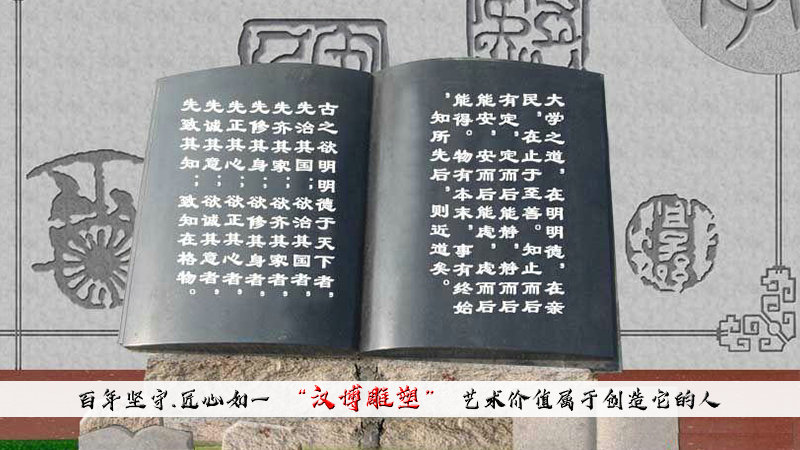 大学之道，在明明德，在亲
民，在止于至善。知止而后
有定，定而后能静，静而后
能安，安而后能虑，虑而后
能得。物有本末，事有终始
，知所先后，则近道矣。
古之欲明明德于天下者，
先治其国；欲治其国者，
先齐其家；欲齐其家者，
先修其身；欲修其身者，
先正其心；欲正其心者，
先诚其意；欲诚其意者，
先致其知；致知在格物。
百年坚守.匠心如一 “汉博雕塑” 艺术价值属于创造它的人